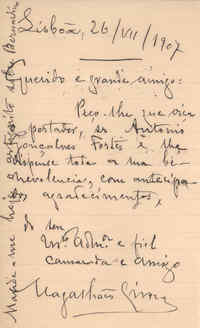 Lisboa, 26/VII/1907
Querido e grande amigo:
Peço-lhe que oiça
o portador, sr. Antonio
Gonçalves Fortes e lhe
dispense toda a sua be-
nevolencia, com antecipa-
dos agradecimentos,
do seu
Mto. Admor. e fiel
camarada e amigo
Magalhães Lima
Mande-me hoje o artiguito sobre